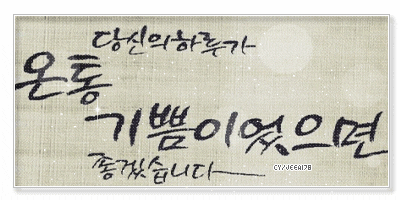 당신의하루가
온통
기쁨이었으면
좋겠습니다
CY/JEEAI7B